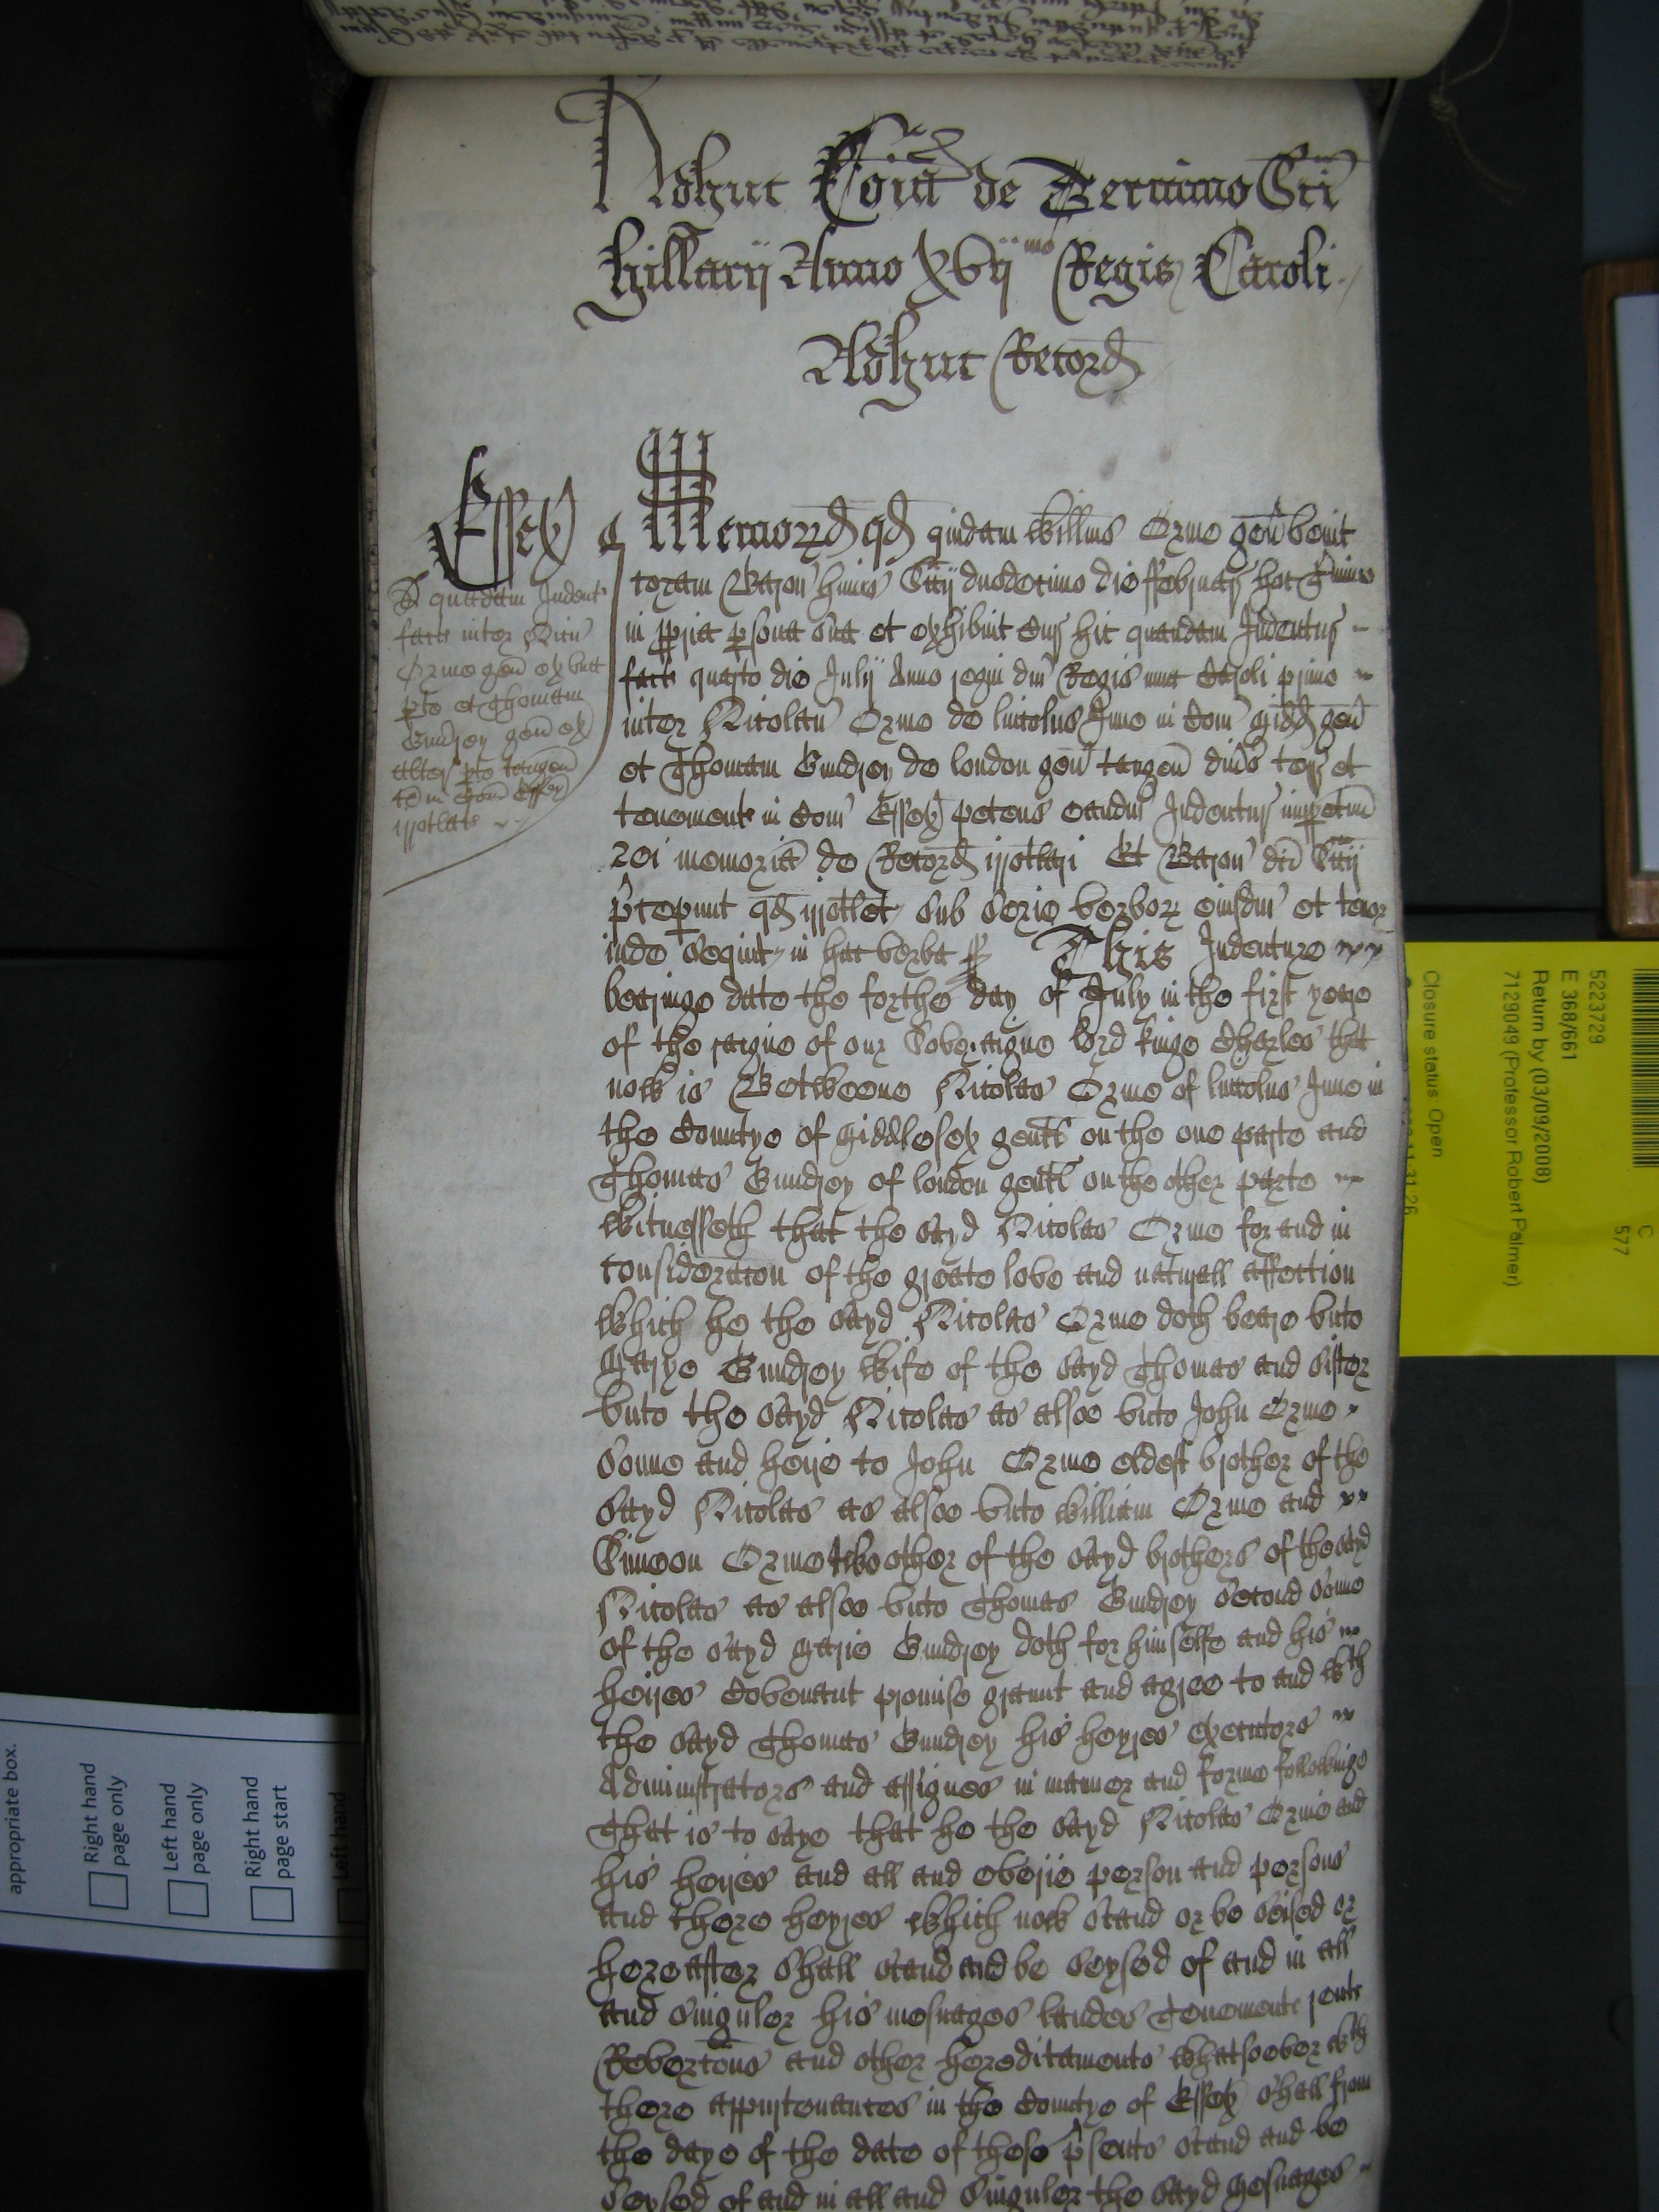 Adhuc Coīa de Termino Scī
Hillarij Anno xvijmo Regis Caroli
Adhuc Record
Essex
A quadam Indent
fact inter Nicm
Orme gen ex una
pte et Thomam
Gundrey gen ex
alter pte tangen
in Com Essex
irrotlat
Memorand qd quidam Willms Orme gen venit
coram Baron huius Sccij duodecimo die Februar hoc Termino
in ppria psona sua et exhibuit Cur hic quandam Indentur
fact quarto die Julij Anno regni dni Regis nunc Caroli primo
inter Nicolau Orme de Lincolns Inne in Com Midd gen
et Thomam Gundrey de London gen tangen divs terr et
tenement in Com Essex petens eandm Indentur imppetm
rei memoria de Record irrotlari Et Baron dci Sccij
pcepunt qd irrotlet sub serie verbor eiusdm et tenor
inde sequit in hec verba ss This Indenture
bearinge date the forthe day of July in the first yeare
of the raigne of our Soveraigne lord kinge Charles that
now is Betweene Nicolas Orme of Lincolns Inne in
the Countye of Middlesex gentl on the one parte and
Thomas Gundrey of London gentl on the other parte
Witnesseth that the sayd Nicolas Orme for and in
consideracon of the greate love and naturall affection
which he the sayd Nicolas Orme doth beare unto
Marye Gundrey wife of the sayd Thomas and sister
unto the sayd Nicolas as alsoe unto John Orme
sonne and heire to John Orme eldest brother of the
sayd Nicolas as alsoe unto William Orme and
Simeon Orme two other of the sayd brothers of the sayd
Nicolas as alsoe unto Thomas Gundrey second sonne
of the sayd Marie Gundrey doth for himselfe and his
heires Covenant promise graunt and agree to and wth
the sayd Thomas Gundrey his heyres executors
Administrators and assignes in maner and forme followinge
That is to saye that he the sayd Nicolas Orme and
his heires and all and everie person and persons
and there heyres which now stand or be seised or
hereafter shall stand and be seysed of and in all
and singuler his mesuages landes Tenements rents
Revercons and other hereditaments whatsoever wth
there appurtenances in the Countye of Essex shall from
the daye of the date of these psents stand and be
seysed of and in all and singuler the sayd Mesuages
5223729
E 368/661
Return by (03/09/2008)
7129049 (Professor Robert Palmer)
Closure status: Open
C
577
appropriate box.
Right hand
page only
Left hand
page only
Right hand
page start
Left hand